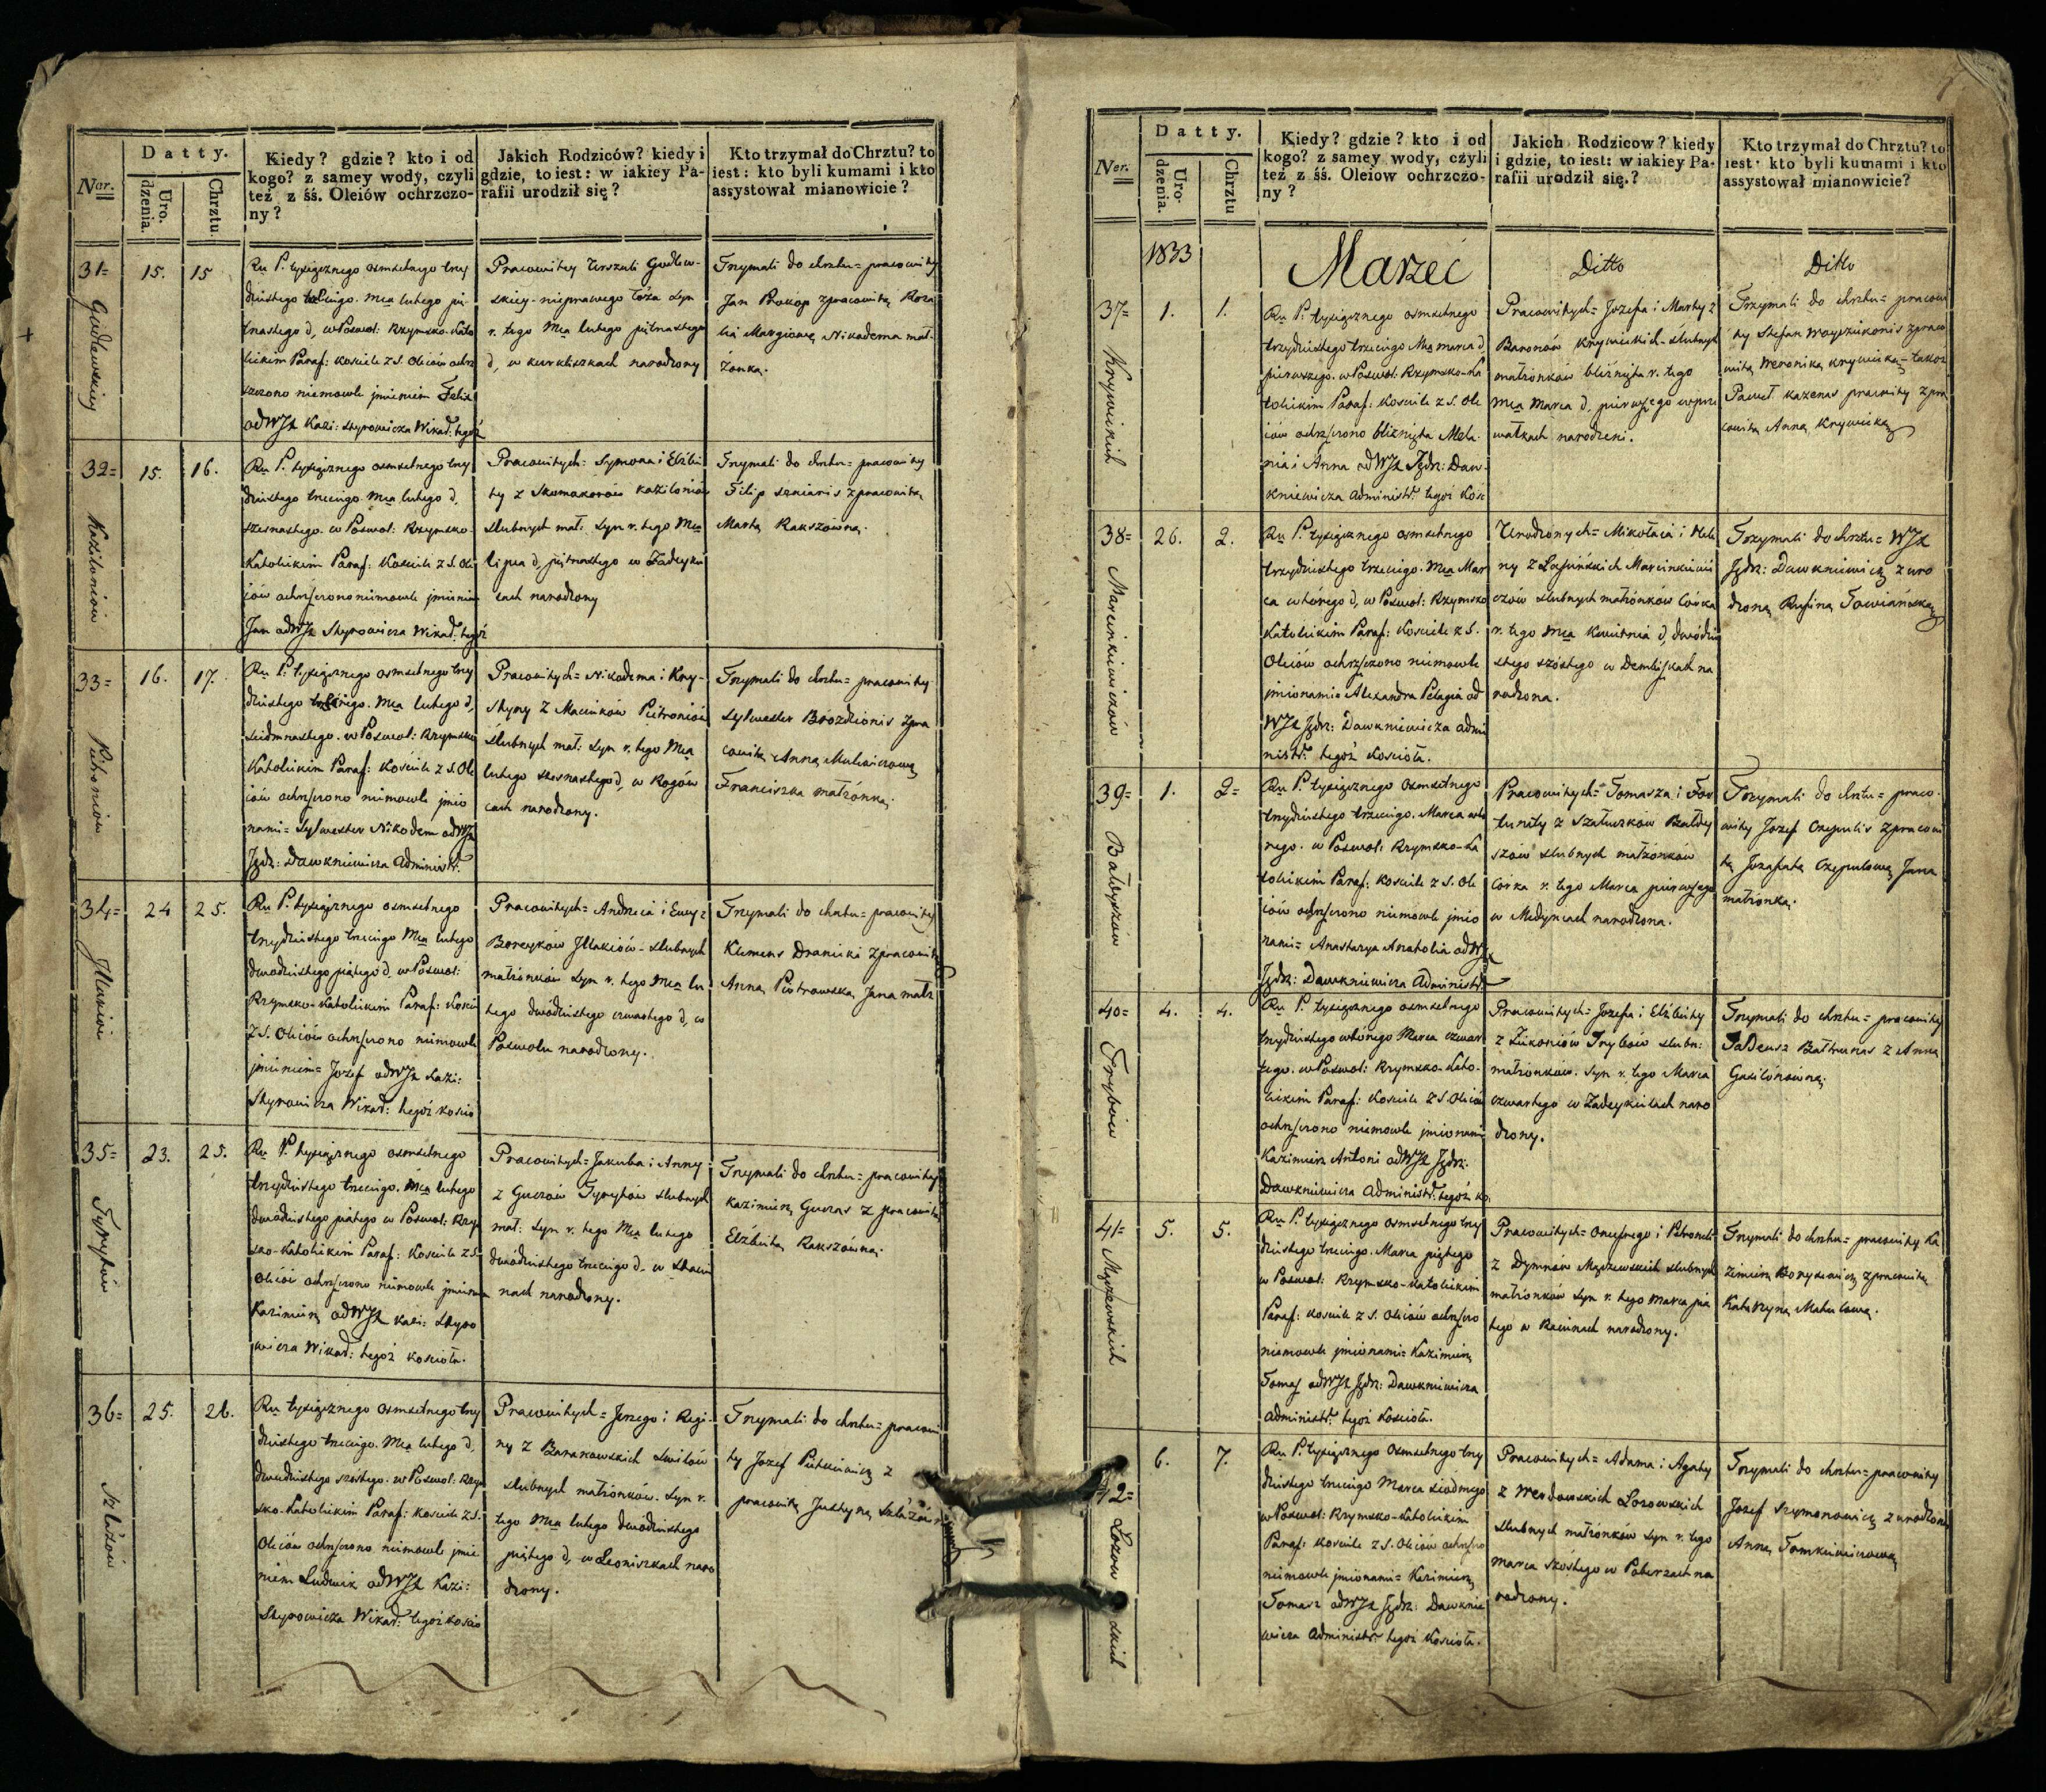 Ner.
Datty.
Uro.
dzenia.
Chrztu.
Kiedy? gdzie? kto i od
kogo? z samey wody, czyli
też z śś. Oleiów ochrzczo-
ny?
Jakich Rodziców? kiedy i
gdzie, to iest: w iakiey Pa-
rafii urodził się?
Kto trzymał do Chrztu? to
iest: kto byli kumami i kto
assystował mianowicie?
31=
Godlewskiey
15.
15
Ru P. tysiącznego osmsetnego trzy
dziestego trzeciego. Mca lutego pię
tnastego d, w Poswol: Rzymsko-Kato
lickim Paraf: Kościele z S. Oleiów ochrz
szczono niemowle jmieniem Felix
od WJX Kazi: Skyrowicza Wikar: tegoż
Pracowitey Urszuli Godlew-
skiey - nieprawego łoża syn
r. tego Mca lutego piętnastego
d, w Kurkliszkach narodzony
Trzymali do chrztu= pracowity
Jan Prokop z pracowitą Roza
lią Margiową Nikodema mał-
żonką.
32=
Kaziloniow
15.
16.
Ru P. tysiącznego osmsetnego trzy
dziestego trzeciego. Mca lutego d,
szesnastego. w Poswol: Rzymsko-
Katolickim Paraf: Kościele z S. Ole
iów ochrzszczono niemowle jmieniem
Jan od WJX Skyrowicza Wikar: tegoż
Pracowitych= Symona i Elżbie
ty z Skomakorów Kaziloniów
slubnych mał: syn r. tego Mca
lipca d, piętnastego w Zadeyki
ciach narodzony
Trzymali do chrztu= pracowity
Filip Szniaris z pracowitą
Martą Rakszówną.
33=
Pietroniow
16.
17.
Ru P. tysiącznego osmsetnego trzy
dziestego trzeciego. Mca lutego d,
siedmnastego. w Poswol: Rzymsko
Katolickim Paraf: Kościele z S. Ole
iów ochrzszczono niemowle jmio
nami= Sylwester Nikodem od WJX
Jędr: Dawkniewicza Administ.
Pracowitych= Nikodema i Kry-
styny z Macinków Pietroniów
slubnych mał: syn r. tego Mca
lutego szesnastego d, w Rogów
cach narodzony.
Trzymali do chrztu= pracowity
Sylwester Bozdzionis z pra
cowitą Anną Mulewiczową
Franciszka małżonką.
34=
Jllakiow
24
25.
Ru P. tysiącznego osmsetnego
trzydziestego trzeciego Mca lutego
dwudziestego piątego d, w Poswol:
Rzymsko-Katolickim Paraf: Kościele
z S. Oleiów ochrzszczono niemowle
jmieniem= Jozef od WJX Kazi:
Skyrowicza Wikar: tegoż kościo
Pracowitych= Andrzeia i Ewy z
Boreykow Jllakiów - slubnych
małżonków syn r. tego Mca lu
tego dwudziestego czwartego d, w
Poswolu narodzony.
Trzymali do chrztu= pracowity
Klemens Dranicki z pracowitą
Anną Piotrowską Jana małż
35=
Tyrytow
23.
25.
Ru P. tysiącznego osmsetnego
trzydziestego trzeciego. Mca lutego
dwudziestego piątego w Poswol: Rzym
sko-Katolickim Paraf: Kościele z S.
Oleiów ochrzszczono niemowle jmieniem
Kazimierz od WJX Kazi: Skyro
wicza Wikar: tegoż kościoła.
Pracowitych= Jakuba i Anny
z Guczow Tyrytów slubnych
mał: syn r. tego Mca lutego
dwudziestego trzeciego d, w
nach narodzony.
Trzymali do chrztu= pracowity
Kazimierz Guczas z pracowitą
Elżbietą Rakszówną.
36=
Szlizow
25.
26.
Ru tysiącznego osmsetnego trzy
dziestego trzeciego. Mca lutego d,
dwudziestego szóstego. w Poswol: Rzym
sko-Katolickim Paraf: Kościele z S.
Oleiów ochrzszczono niemowle jmie
niem Ludwik od WJX Kazi:
Skyrowicza Wikar: tegoż kościo
Pracowitych= Jerzego i Regi-
ny z Baranowskich
slubnych małżonków. syn r.
tego Mca lutego dwudziestego
piątego d, w Leoniszkach naro
dzony.
Trzymali do chrztu= pracowi
ty Jozef Pietkiewicz z
pracowitą Justyną
Ner.
Datty.
Uro-
dzenia.
Chrztu
Kiedy? gdzie? kto i od
kogo? z samey wody, czyli
też z śś. Oleiow ochrzczo-
ny?
Jakich Rodzicow? kiedy
i gdzie, to iest: w iakiey Pa-
rafii urodził się.?
Kto trzymał do Chrztu? to
iest: kto byli kumami i kto
assystował mianowicie?
1833
Marzec
Ditto
Ditto
37=
Krywickich
1.
1.
Ru P. tysiącznego osmsetnego
trzydziestego trzeciego Mca marca d
pierwszego. w Poswol: Rzymsko-Ka
tolickim Paraf: Kościele z S. Ole
iów ochrzszczono bliznięta Mela-
nia i Anna od WJX Jędr: Daw-
kniewicza Administ: tegoż Kośc
Pracowitych= Jozefa i Marty z
Baronów Krywickich - slubnych
małżonkow bliźnięta r. tego
Mca Marca d, pierwszego w
wałkach narodzeni.
Trzymali do chrztu= pracowi
ty Stefan Woyszkonis z praco
witą Weroniką Krywicką - także
Paweł Kazenas pracowity z pra
cowitą Anną Krywicką
38=
Marcinkiewiczów
26.
2.
Ru P. tysiącznego osmsetnego
trzydziestego trzeciego. Mca Mar
ca wtórego d, w Poswol: Rzymsko
Katolickim Paraf: Kościele z S.
Oleiów ochrzszczono niemowle
jmionami= Alexandra Pelagia od
WJX Jędr: Dawkniewicza Admi
nistr: tegoż Kościoła.
Urodzonych= Mikołaia i Hele
ny z Marcinkiewi
czów slubnych małżonków Córka
r. tego Mca Kwietnia d, dwudzie
stego szóstego w Dembiszkach na
rodzona.
Trzymali do chrztu= WJX
Jędr: Dawkniewicz z uro
dzoną Rufiną Towiańską
39=
Bałtyszow
1.
2=
Ru P. tysiącznego osmsetnego
trzydziestego trzeciego. Marca wtó
rego. w Poswol: Rzymsko-Ka
tolickim Paraf: Kościele z S. Ole
iów ochrzszczono niemowle jmio
nami= Anastazya Anatolia od WJX
Jędr: Dawkniewicza Administ:
Pracowitych= Tomasza i For
tunaty z Szałuczkow Bałty
szów slubnych małżonków
Córka r. tego Marca pierwszego
w Medyncach narodzona.
Trzymali do chrztu= praco-
wity Jozef Czepulis z pracowi
tą Jozafatą Czepulową Jana
małżonką.
40=
Tryboiw
4.
4.
Ru P. tysiącznego osmsetnego
trzydziestego wtórego Marca czwar
tego. w Poswol: Rzymsko-Kato-
lickim Paraf: Kościele z S. Oleiów
ochrzszczono niemowle jmionami
Kazimierz Antoni od WJX Jędr:
Dawkniewicza Administ: tegoż ko.
Pracowitych= Jozefa i Elżbiety
z Zukoniów Trybów slubn:
małżonków. syn r. tego Marca
czwartego w Zadeykiciach naro
dzony.
Trzymali do chrztu= pracowity
Tadeusz Bałtrunas z Anną
Gasilónówną.
41=
Mężewskich
5.
5.
Ru P. tysiącznego osmsetnego trzy
dziestego trzeciego. Marca piątego
w Poswol: Rzymsko-Katolickim
Paraf: Kościele z S. Oleiów ochrzszczo
niemowle jmionami= Kazimierz
Tomasz od WJX Jędr: Dawkniewicza
Administ: tegoż Kościoła.
Pracowitych= Onufrego i Petroneli
z Dymnów Mężewskich slubnych
małżonków syn r. tego marca pią
tego w Rawinach narodzony.
Trzymali do chrztu= pracowity Ka
zimierz Borysewicz z pracowitą
Katarzyną Matulową.
42=
Lozow skich
6.
7.
Ru P. tysiącznego osmsetnego trzy
dziestego trzeciego Marca siódmego
w Poswol: Rzymsko-Katolickim
Paraf: Kościele z S. Oleiów ochrzszczo
niemowle jmionami= Kazimierz
Tomasz od WJX Jędr: Dawknie
wicza Administ: tegoż Kościoła.
Pracowitych= Adama i Agaty
z Werdowskich Lozowskich
slubnych małżonków syn r. tego
marca szóstego w Paberzach na
rodzony.
Trzymali do chrztu= pracowity
Jozef Szymonowicz z urodzoną
Anną Tomkiewiczową